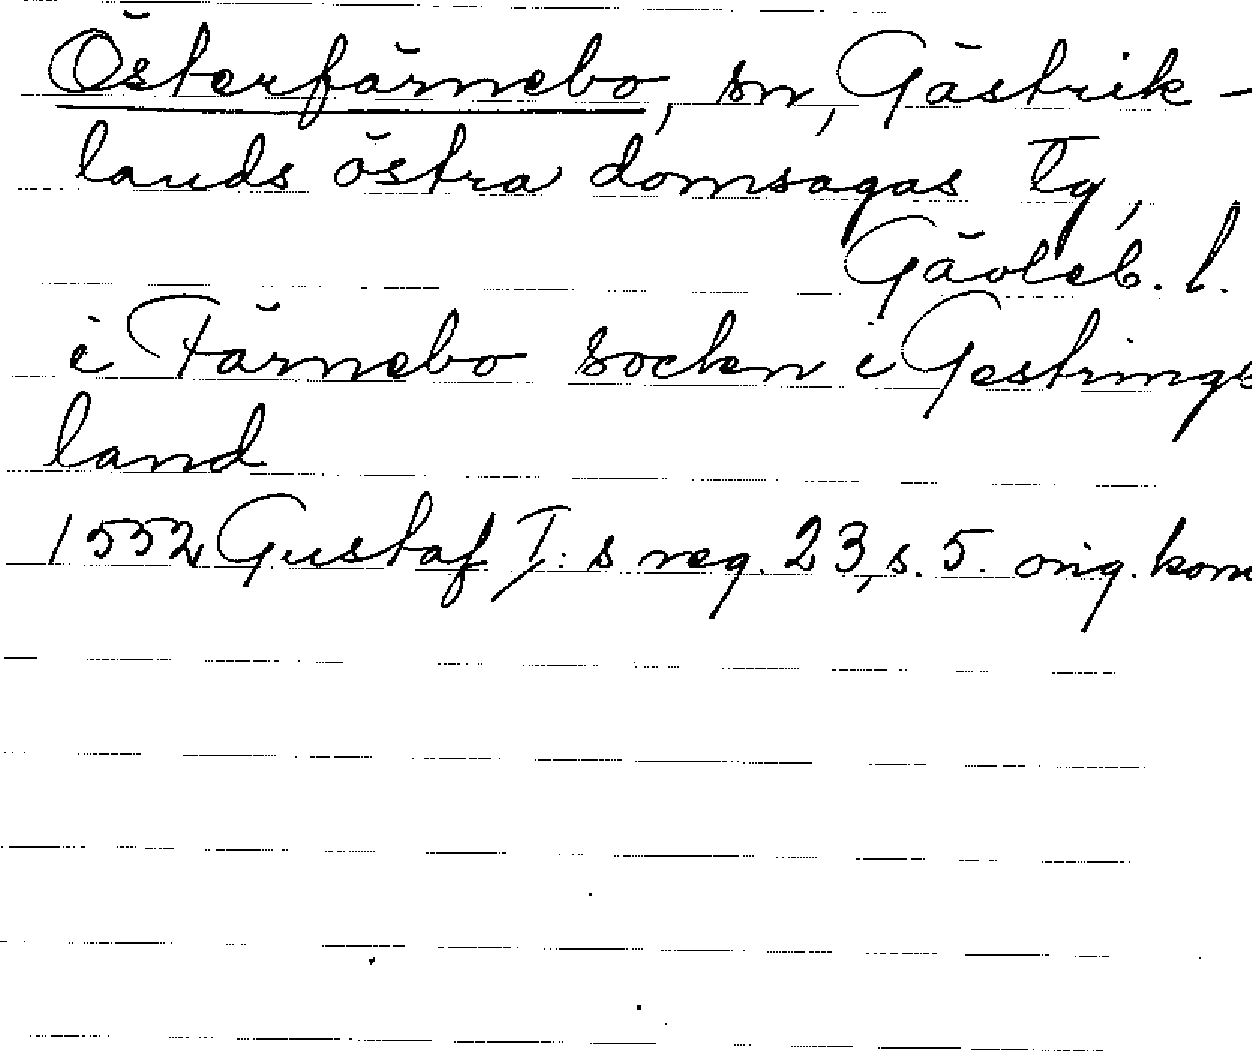 Österfärnebo, sn, Gästrik-
lands östra domsagas tg,
Gävleb. l.
i Färnebo socken i Gestrings
land
1552 Gustaf I: s reg. 23, s. 5. orig. kom